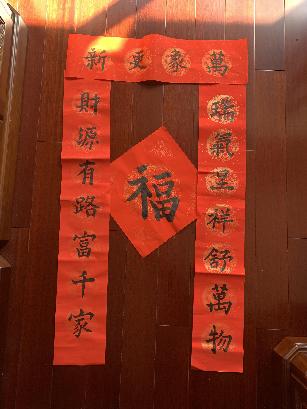 萬象更新
瑞氣呈祥舒萬物
福
財源有路富千家